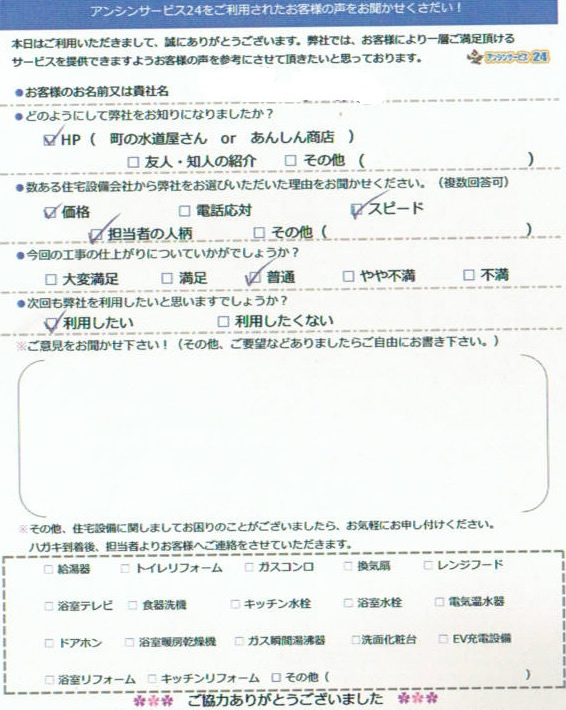 アンシンサービス24をご利用されたお客様の声をお聞かせくさだい！
本日はご利用いただきまして、誠にありがとうございます。弊社では、お客様により一層ご満足頂ける
サービスを提供できますようお客様の声を参考にさせて頂きたいと思っております。
アンシンサービス 24
●お客様のお名前又は貴社名
●どのようにして弊社をお知りになりましたか？
☑HP（ 町の水道屋さん or あんしん商店 ）
□友人・知人の紹介 □その他（ ）
●数ある住宅設備会社から弊社をお選びいただいた理由をお聞かせください。（複数回答可）
☑価格 □電話応対 ☑スピード
☑担当者の人柄 □その他（ ）
●今回の工事の仕上がりについていかがでしょうか？
□大変満足 □満足 ☑普通 □やや不満 □不満
●次回も弊社を利用したいと思いますでしょうか？
☑利用したい □利用したくない
※ご意見をお聞かせ下さい！（その他、ご要望などありましたらご自由にお書き下さい。）
※その他、住宅設備に関しましてお困りのことがございましたら、お気軽にお申し付けください。
ハガキ到着後、担当者よりお客様へご連絡をさせていただきます。
□給湯器 □トイレリフォーム □ガスコンロ □換気扇 □レンジフード
□浴室テレビ □食器洗機 □キッチン水栓 □浴室水栓 □電気温水器
□ドアホン □浴室暖房乾燥機 □ガス瞬間湯沸器 □洗面化粧台 □EV充電設備
□浴室リフォーム □キッチンリフォーム □その他（ ）
ご協力ありがとうございました